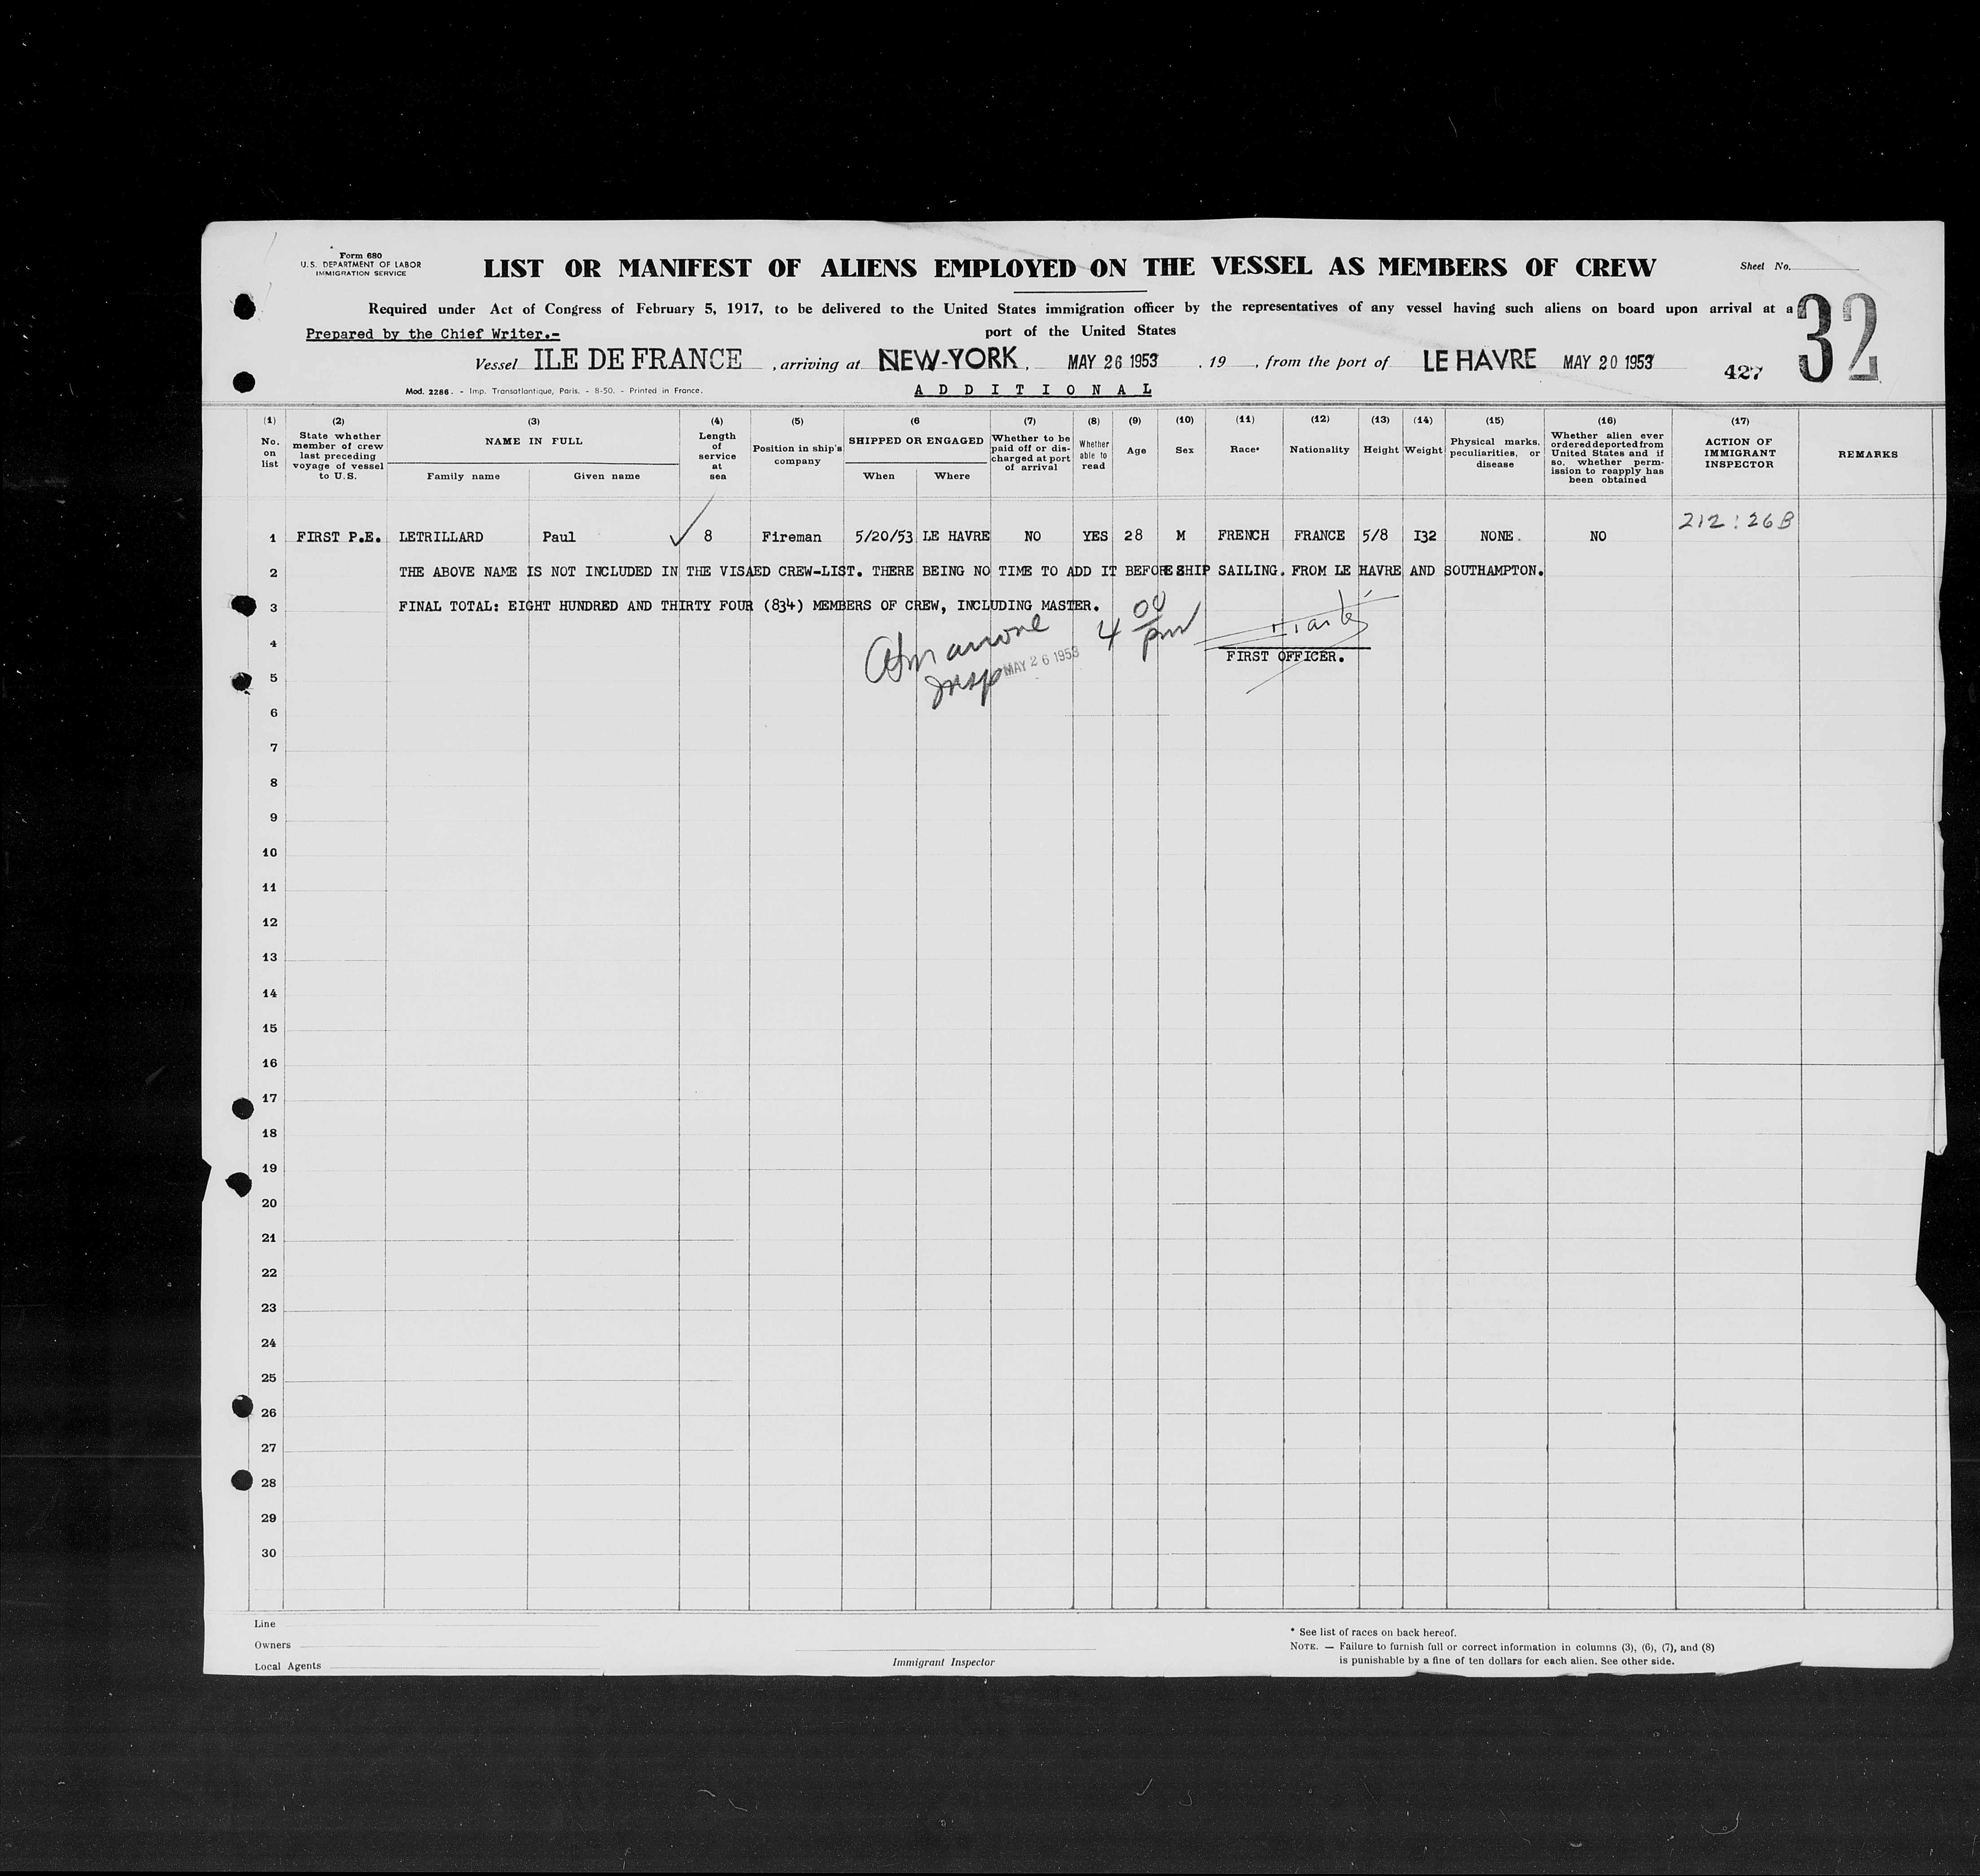 Form 680
U.S. DEPARTMENT OF LABOR
IMMIGRATION SERVICE
LIST OR MANIFEST OF ALIENS EMPLOYED ON THE VESSEL AS MEMBERS OF CREW
Sheet No.
32
Required under Act of Congress of February 5, 1917, to be delivered to the United States immigration officer by the representatives of any vessel having such aliens on board upon arrival at a
port of the United States
Prepared by the Chief Writer.-
Vessel ILE DE FRANCE , arriving at NEW-YORK, MAY 26 1953 , 19 , from the port of LE HAVRE MAY 20 1953
427
Mod. 2286. - Imp. Transatlantique, Paris. - 8-50. - Printed in France.
ADDITIONAL
(1) No. on list
(2) State whether member of crew last preceding voyage of vessel to U.S.
(3) NAME IN FULL
Family name Given name
(4) Length of service at sea
(5) Position in ship's company
(6 SHIPPED OR ENGAGED
When Where
(7) Whether to be paid off or discharged at port of arrival
(8) Whether able to read
(9) Age
(10) Sex
(11) Race*
(12) Nationality
(13) Height
(14) Weight
(15) Physical marks, peculiarities, or disease
(16) Whether alien ever ordered deported from United States and if so, whether permission to reapply has been obtained
(17) ACTION OF IMMIGRANT INSPECTOR
REMARKS
212:26B
1 FIRST P.E. LETRILLARD Paul 8 Fireman 5/20/53 LE HAVRE NO YES 28 M FRENCH FRANCE 5/8 I32 NONE. NO
2 THE ABOVE NAME IS NOT INCLUDED IN THE VISAED CREW-LIST. THERE BEING NO TIME TO ADD IT BEFORE SHIP SAILING. FROM LE HAVRE AND SOUTHAMPTON.
3 FINAL TOTAL: EIGHT HUNDRED AND THIRTY FOUR (834) MEMBERS OF CREW, INCLUDING MASTER.
4 4 00 pm
FIRST OFFICER.
5 Insp MAY 26 1953
6
7
8
9
10
11
12
13
14
15
16
17
18
19
20
21
22
23
24
25
26
27
28
29
30
Line
Owners
Local Agents
Immigrant Inspector
* See list of races on back hereof.
NOTE. — Failure to furnish full or correct information in columns (3), (6), (7), and (8)
is punishable by a fine of ten dollars for each alien. See other side.